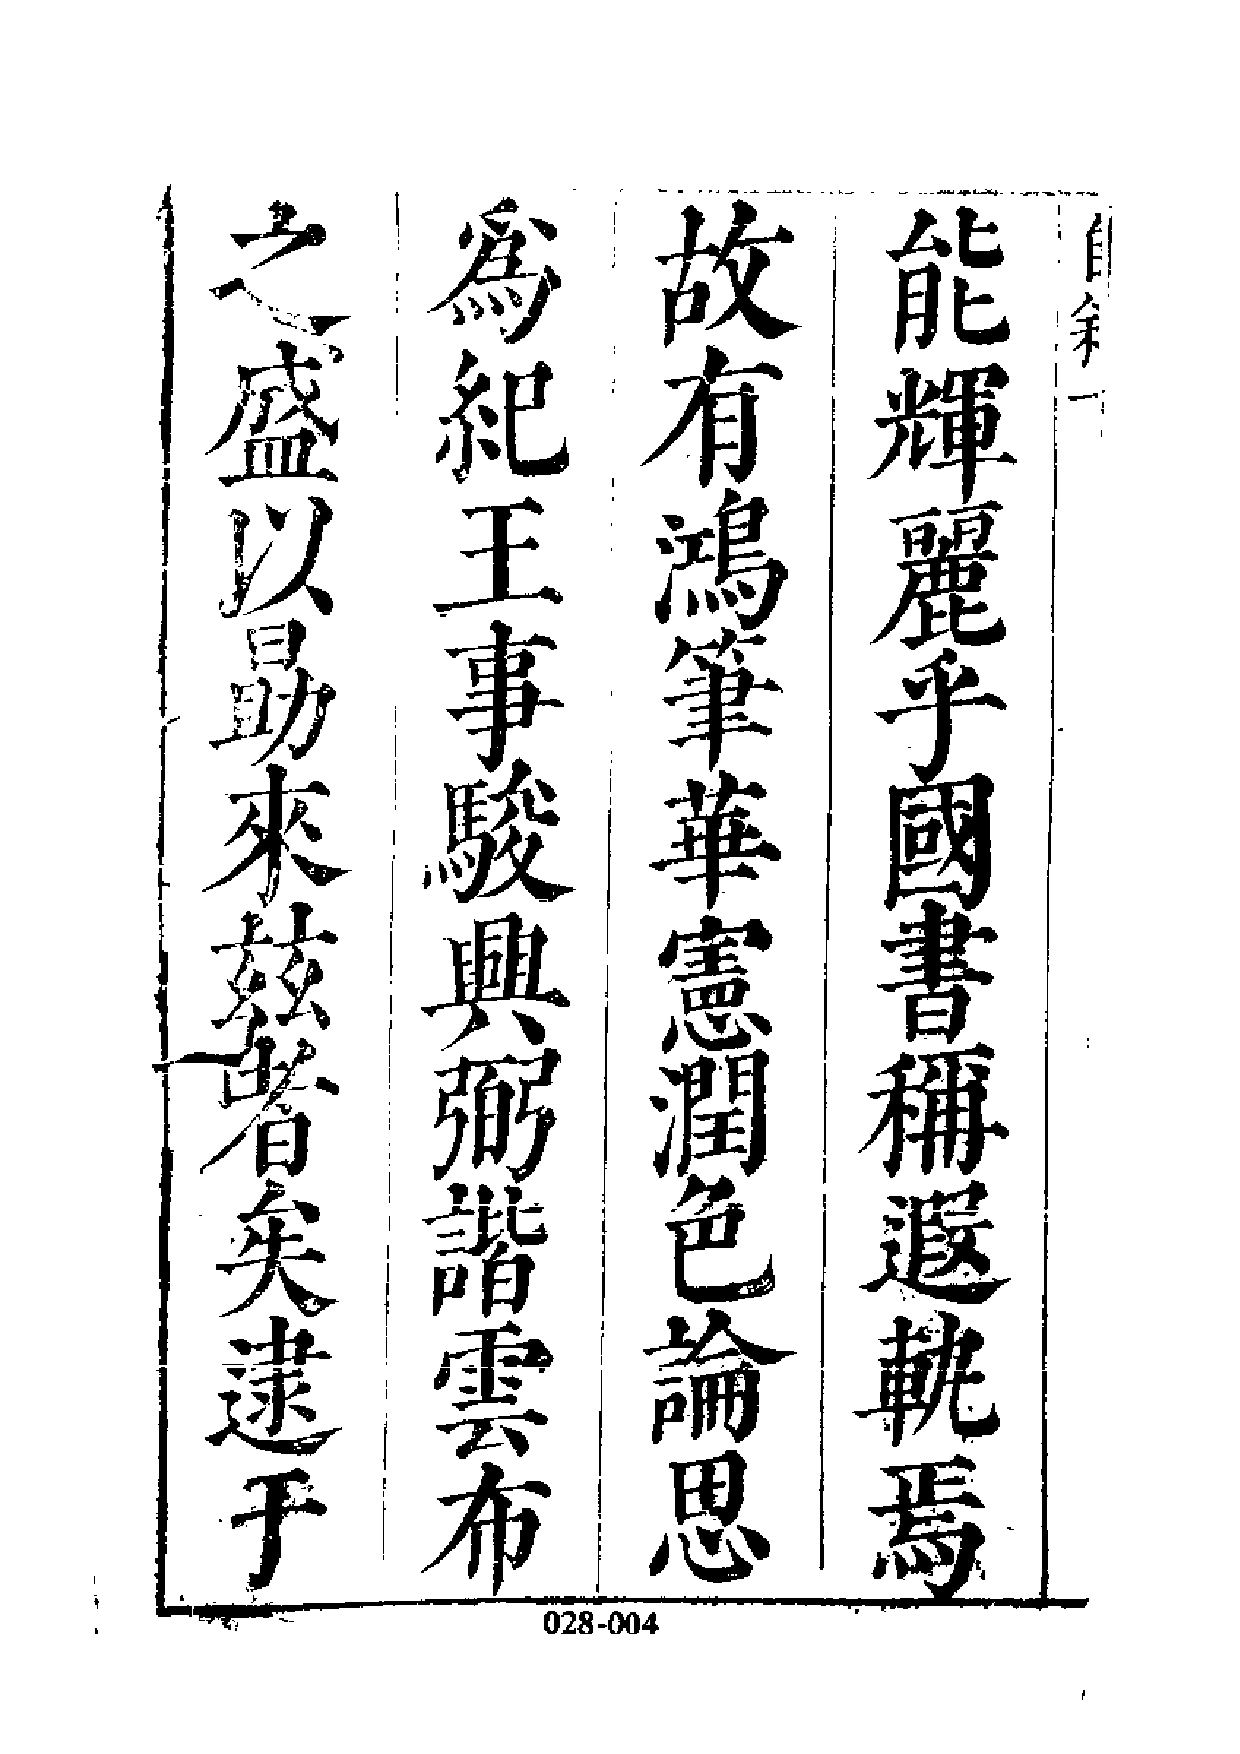 能輝麗乎國書稱遐軌焉
故有鴻筆華憲潤色論思
爲紀王事駿興弼諧雲布
之盛以勗來茲者矣逮于
028-004